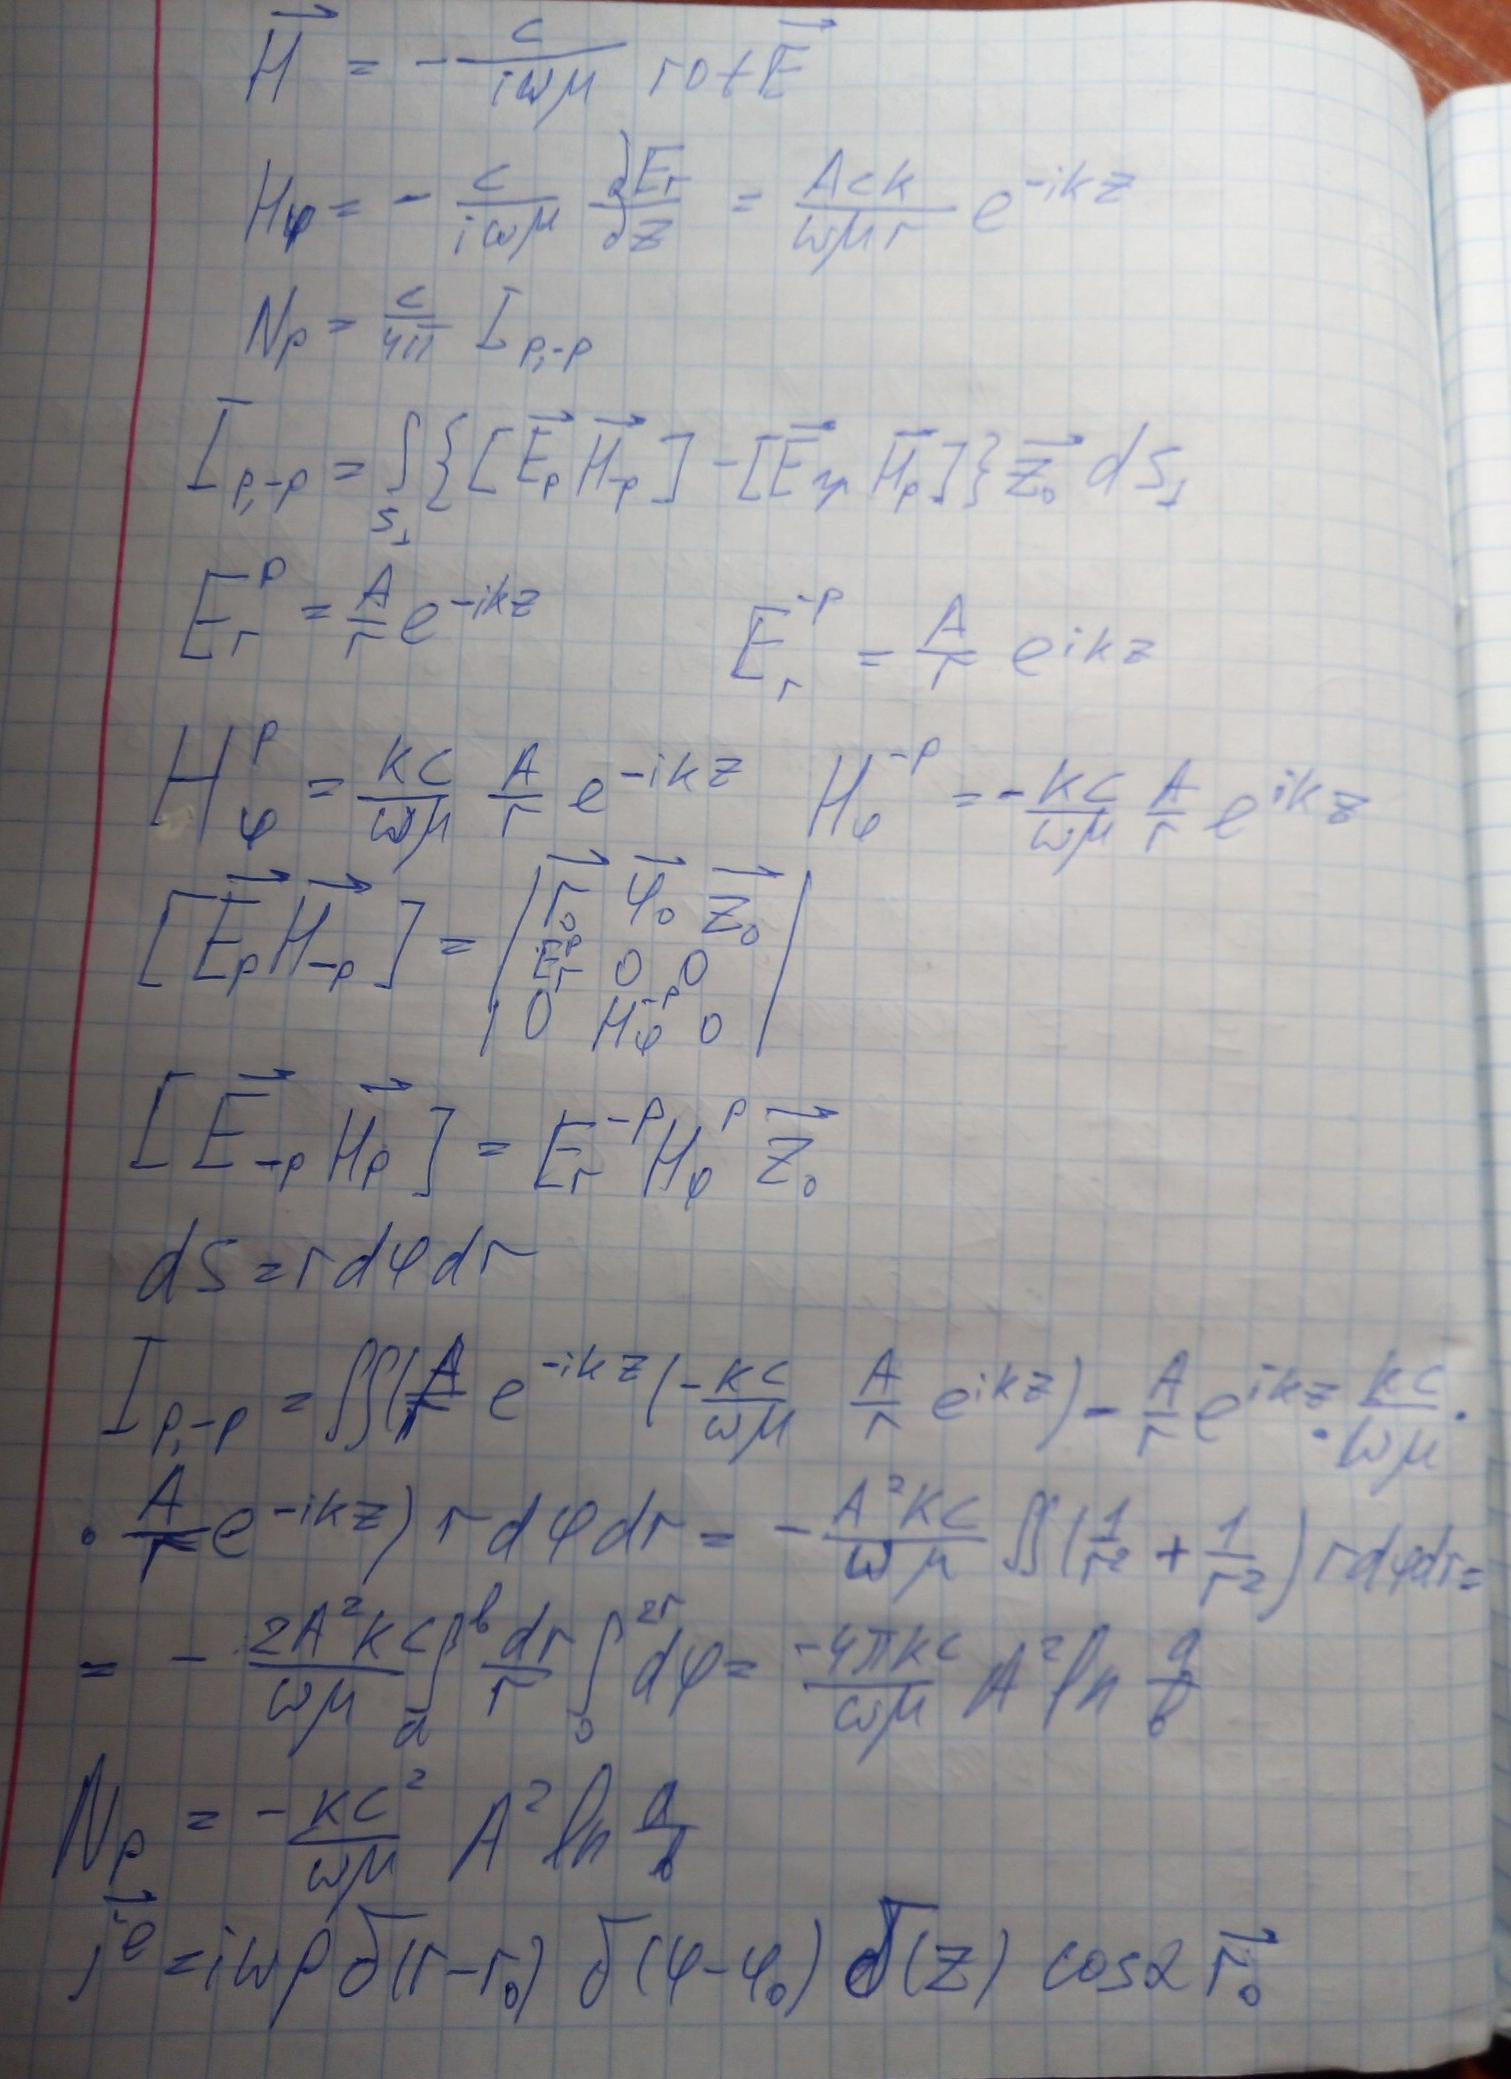 H⃗ = - c/(iωμ) rot E⃗
Hφ = - c/(iωμ) ∂Er/∂z = Ack/(ωμr) e^(-ikz)
Np = c/(4π) I p,-p
I p,-p = ∫_(S⊥) {[E⃗p H⃗-p] - [E⃗-p H⃗p]} z⃗₀ dS⊥
Er^p = A/r e^(-ikz)    Er^(-p) = A/r e^(ikz)
Hφ^p = kc/(ωμ) A/r e^(-ikz)    Hφ^(-p) = - kc/(ωμ) A/r e^(ikz)
[E⃗p H⃗-p] = | r⃗₀ φ⃗₀ z⃗₀ |
| Er^p 0 0 |
| 0 Hφ^(-p) 0 |
[E⃗-p H⃗p] = Er^(-p) Hφ^p z⃗₀
dS = r dφ dr
I p,-p = ∬(A/r e^(-ikz) (- kc/(ωμ) A/r e^(ikz)) - A/r e^(ikz) · kc/(ωμ) ·
· A/r e^(-ikz)) r dφ dr = - A²kc/(ωμ) ∬(1/r² + 1/r²) r dφ dr =
= - 2A²kc/(ωμ) ∫_a^b dr/r ∫_0^(2π) dφ = -4πkc/(ωμ) A² ln a/b
Np = - kc²/(ωμ) A² ln a/b
j⃗^e = iωp δ(r-r₀) δ(φ-φ₀) δ(z) cosα r⃗₀